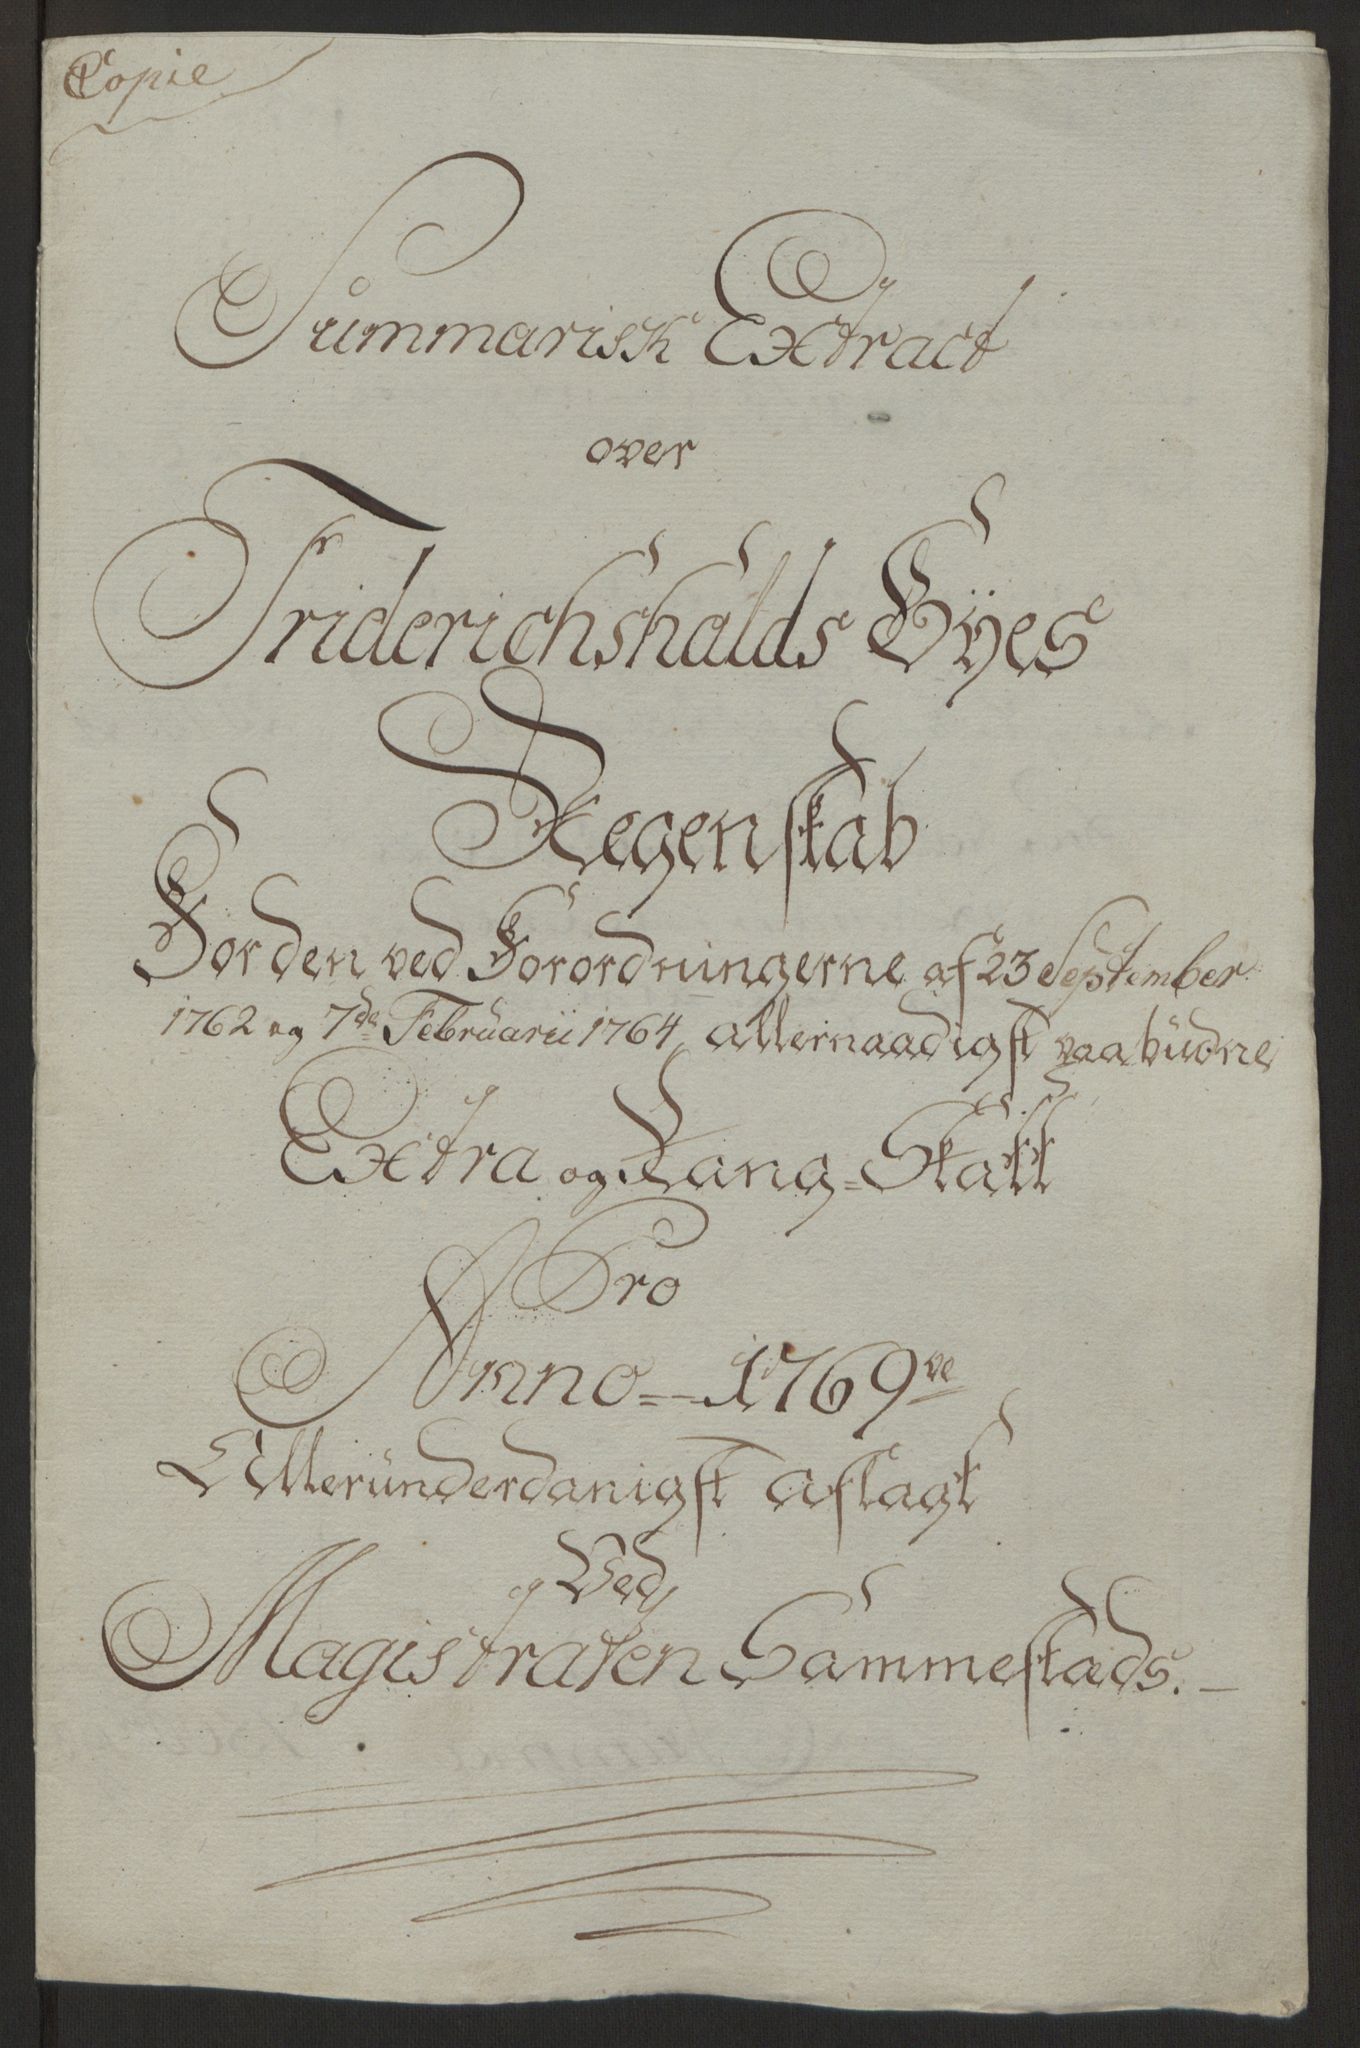 Copie
Summarisk Extract
over
Friderichshalds Byes
Regenskab
For den ved Forordningerne af 23 September
1762 og 7de Februarii 1764 allernaadigst paabudne
Extra og Rang-Skatt
Pro
Anno 1769ve
Allerunderdanigst aflagt
Ved
Magistraten Sammestads.